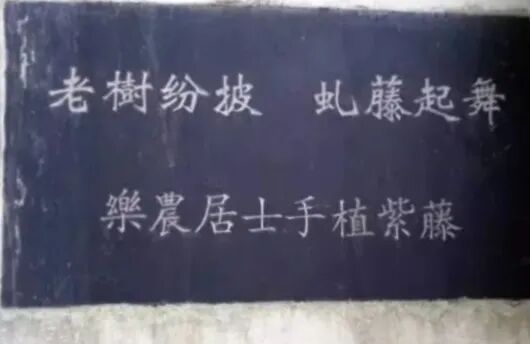 老樹纷披 虬藤起舞
樂農居士手植紫藤